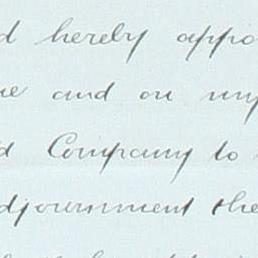 d hereby appo
e and on my
d Company to
djournment the